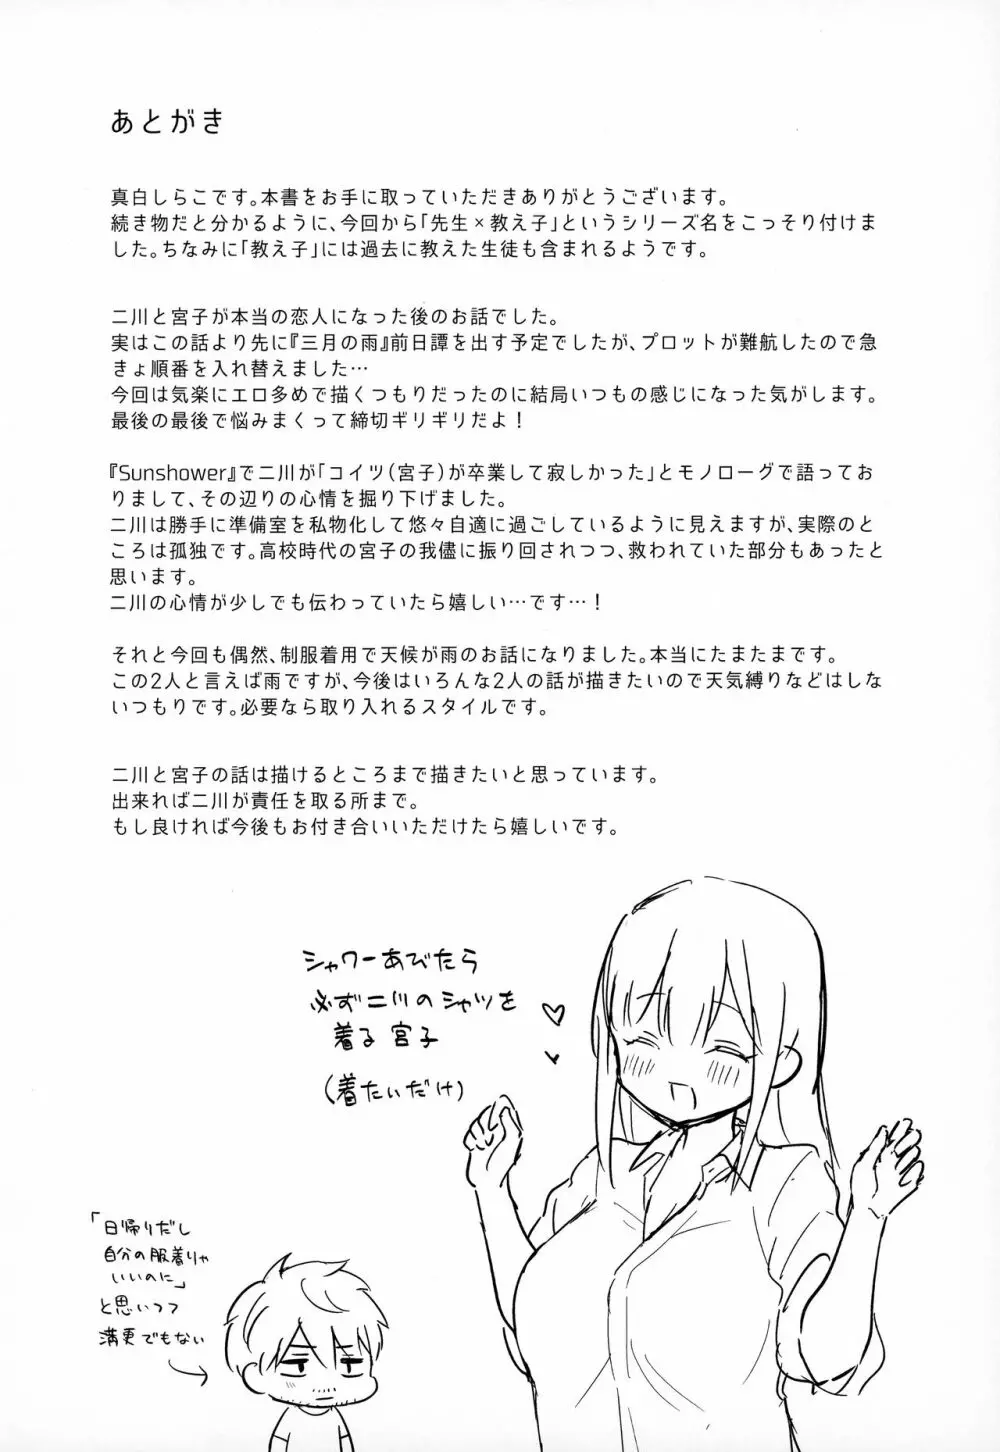 あとがき
真白しらこです。本書をお手に取っていただきありがとうございます。
続き物だと分かるように、今回から「先生×教え子」というシリーズ名をこっそり付けま
した。ちなみに「教え子」には過去に教えた生徒も含まれるようです。
二川と宮子が本当の恋人になった後のお話でした。
実はこの話より先に『三月の雨』前日譚を出す予定でしたが、プロットが難航したので急
きょ順番を入れ替えました…
今回は気楽にエロ多めで描くつもりだったのに結局いつもの感じになった気がします。
最後の最後で悩みまくって締切ギリギリだよ！
『Sunshower』で二川が「コイツ（宮子）が卒業して寂しかった」とモノローグで語ってお
りまして、その辺りの心情を掘り下げました。
二川は勝手に準備室を私物化して悠々自適に過ごしているように見えますが、実際のと
ころは孤独です。高校時代の宮子の我儘に振り回されつつ、救われていた部分もあったと
思います。
二川の心情が少しでも伝わっていたら嬉しい…です…！
それと今回も偶然、制服着用で天候が雨のお話になりました。本当にたまたまです。
この2人と言えば雨ですが、今後はいろんな2人の話が描きたいので天気縛りなどはしな
いつもりです。必要なら取り入れるスタイルです。
二川と宮子の話は描けるところまで描きたいと思っています。
出来れば二川が責任を取る所まで。
もし良ければ今後もお付き合いいただけたら嬉しいです。
シャワーあびたら
必ず二川のシャツを
着る宮子
（着たいだけ）
「日帰りだし
自分の服着りゃ
いいのに」
と思いつつ
満更でもない